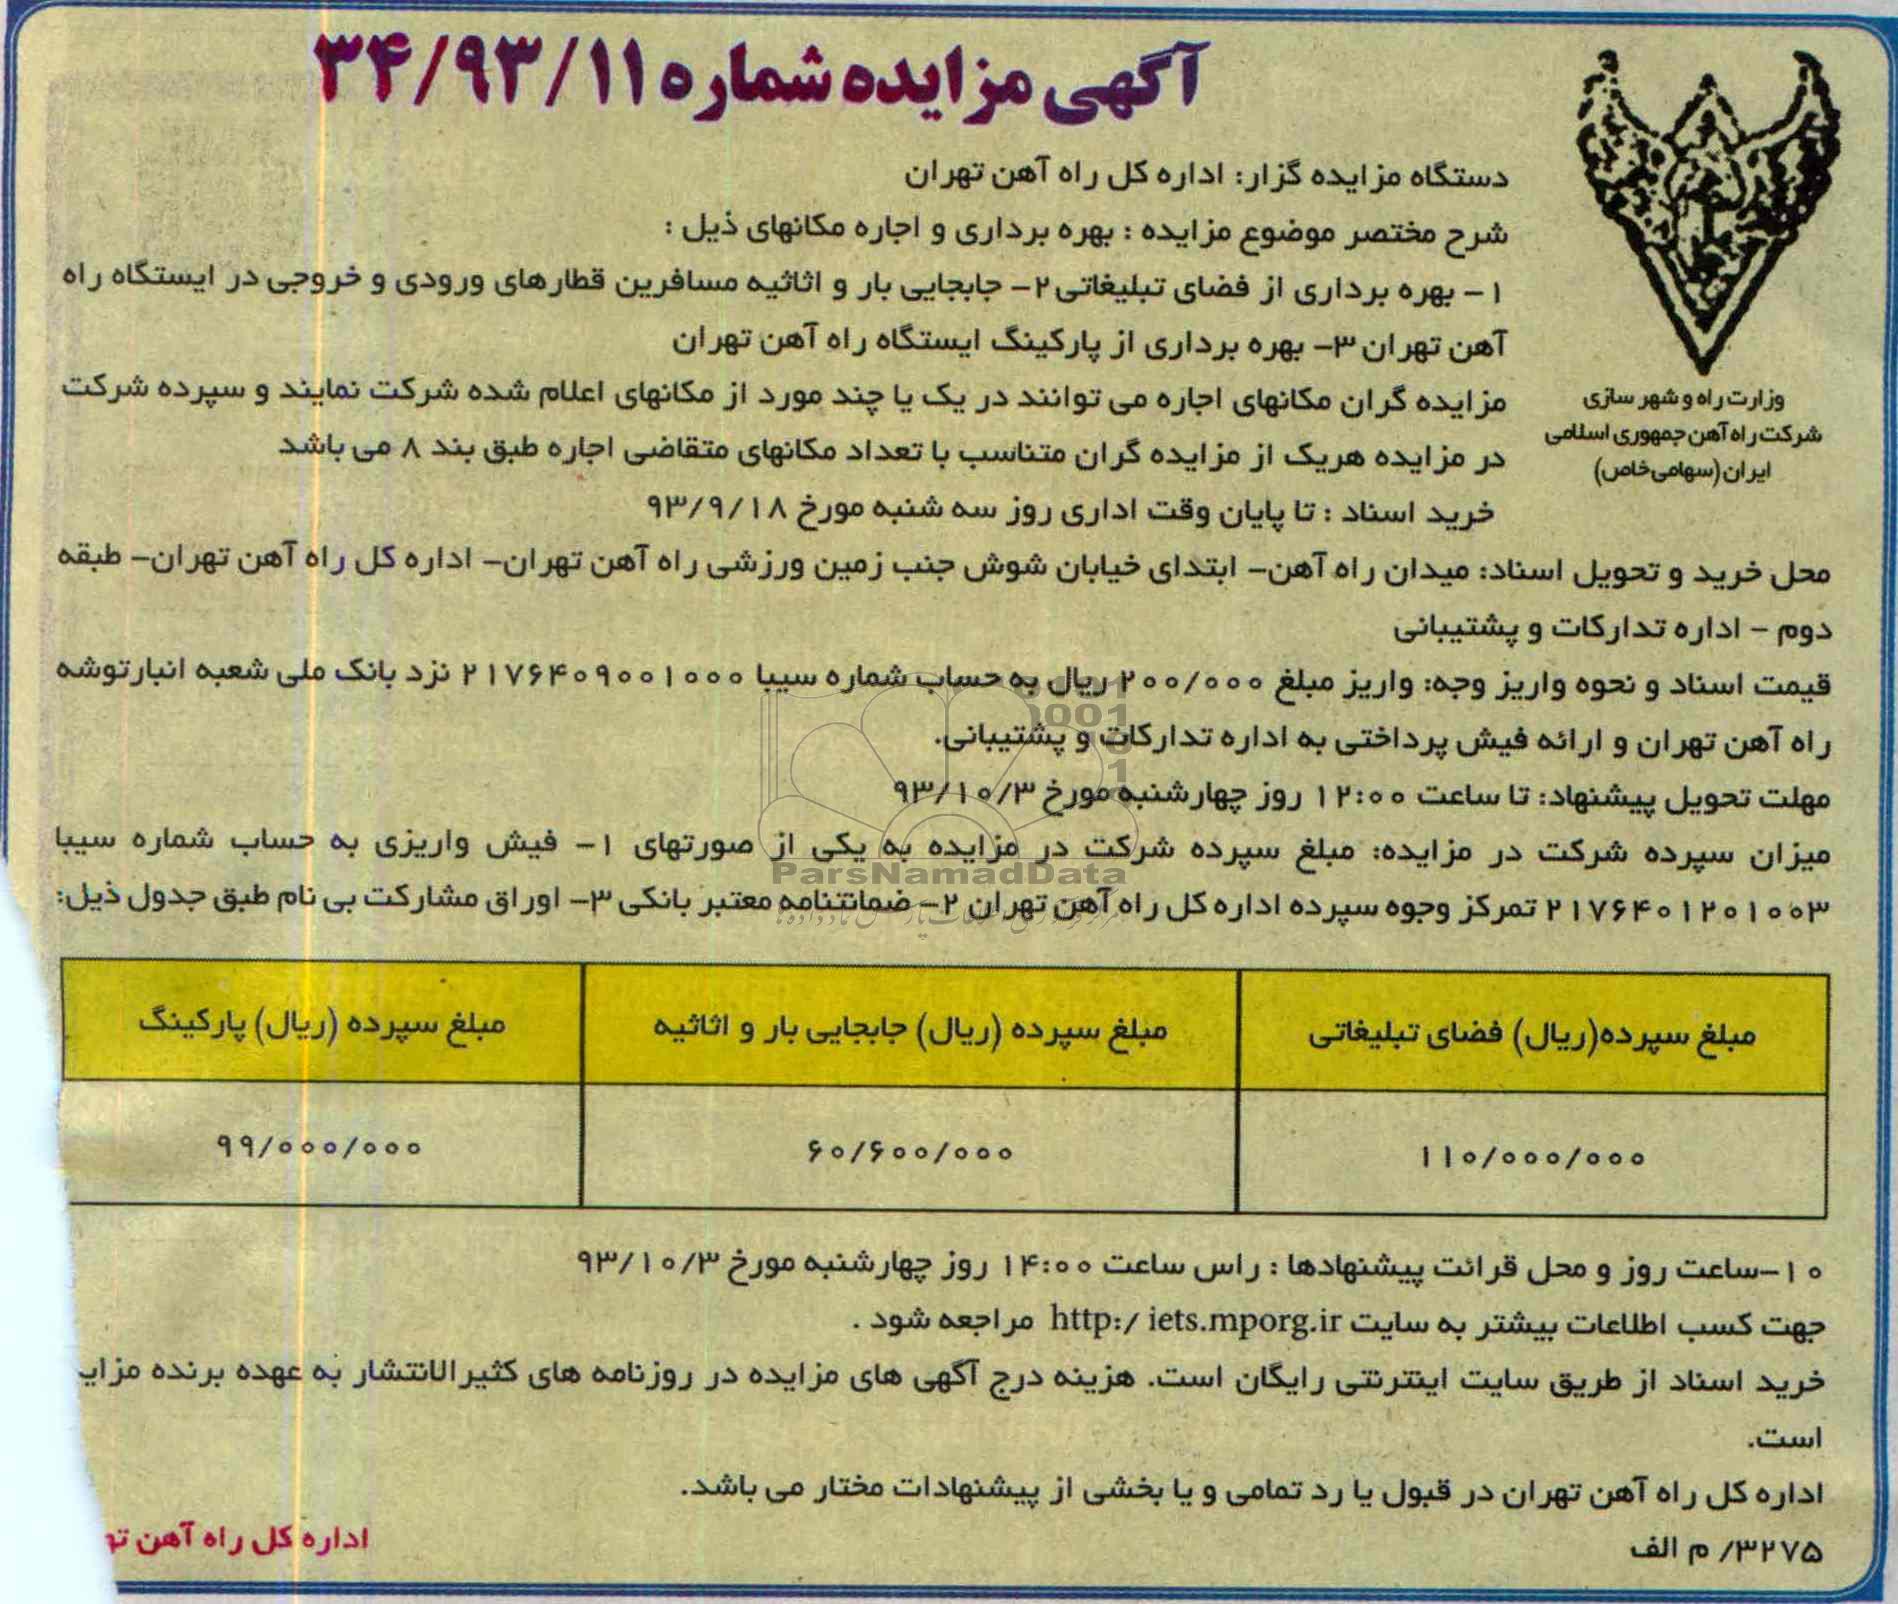 آگهی مزایده شماره ۳۴/۹۳/۱۱
وزارت راه و شهر سازی
شرکت راه آهن جمهوری اسلامی
ایران (سهامی خاص)
دستگاه مزایده گزار: اداره کل راه آهن تهران
شرح مختصر موضوع مزایده : بهره برداری و اجاره مکانهای ذیل :
۱- بهره برداری از فضای تبلیغاتی ۲- جابجایی بار و اثاثیه مسافرین قطارهای ورودی و خروجی در ایستگاه راه
آهن تهران ۳- بهره برداری از پارکینگ ایستگاه راه آهن تهران
مزایده گران مکانهای اجاره می توانند در یک یا چند مورد از مکانهای اعلام شده شرکت نمایند و سپرده شرکت
در مزایده هریک از مزایده گران متناسب با تعداد مکانهای متقاضی اجاره طبق بند ۸ می باشد
خرید اسناد : تا پایان وقت اداری روز سه شنبه مورخ ۹۳/۹/۱۸
محل خرید و تحویل اسناد: میدان راه آهن- ابتدای خیابان شوش جنب زمین ورزشی راه آهن تهران- اداره کل راه آهن تهران- طبقه
دوم - اداره تدارکات و پشتیبانی
قیمت اسناد و نحوه واریز وجه: واریز مبلغ ۲۰۰/۰۰۰ ریال به حساب شماره سیبا ۲۱۷۶۴۰۹۰۰۱۰۰۰ نزد بانک ملی شعبه انبارتوشه
راه آهن تهران و ارائه فیش پرداختی به اداره تدارکات و پشتیبانی.
مهلت تحویل پیشنهاد: تا ساعت ۱۲:۰۰ روز چهارشنبه مورخ ۹۳/۱۰/۳
میزان سپرده شرکت در مزایده: مبلغ سپرده شرکت در مزایده به یکی از صورتهای ۱- فیش واریزی به حساب شماره سیبا
۲۱۷۶۴۰۱۲۰۱۰۰۳ تمرکز وجوه سپرده اداره کل راه آهن تهران ۲- ضمانتنامه معتبر بانکی ۳- اوراق مشارکت بی نام طبق جدول ذیل:
ParsNamadData
مبلغ سپرده(ریال) فضای تبلیغاتی
مبلغ سپرده (ریال) جابجایی بار و اثاثیه
مبلغ سپرده (ریال) پارکینگ
۱۱۰/۰۰۰/۰۰۰
۶۰/۶۰۰/۰۰۰
۹۹/۰۰۰/۰۰۰
۱۰-ساعت روز و محل قرائت پیشنهادها : راس ساعت ۱۴:۰۰ روز چهارشنبه مورخ ۹۳/۱۰/۳
جهت کسب اطلاعات بیشتر به سایت http:/ iets.mporg.ir مراجعه شود .
خرید اسناد از طریق سایت اینترنتی رایگان است. هزینه درج آگهی های مزایده در روزنامه های کثیرالانتشار به عهده برنده مزای
است.
اداره کل راه آهن تهران در قبول یا رد تمامی و یا بخشی از پیشنهادات مختار می باشد.
۳۲۷۵/ م الف
اداره کل راه آهن ته